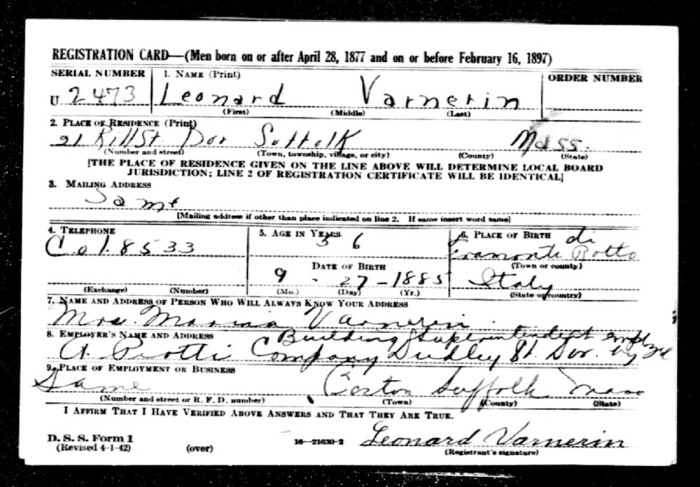 REGISTRATION CARD—(Men born on or after April 28, 1877 and on or before February 16, 1897)
SERIAL NUMBER 1. NAME (Print) ORDER NUMBER
U 2473 Leonard Varnerin
(First) (Middle) (Last)
2. PLACE OF RESIDENCE (Print)
21 St Dor Suffolk Mass.
(Number and street) (Town, township, village, or city) (County) (State)
[THE PLACE OF RESIDENCE GIVEN ON THE LINE ABOVE WILL DETERMINE LOCAL BOARD
JURISDICTION; LINE 2 OF REGISTRATION CERTIFICATE WILL BE IDENTICAL]
3. MAILING ADDRESS
Same
[Mailing address if other than place indicated on line 2. If same insert word same]
4. TELEPHONE 5. AGE IN YEARS 6. PLACE OF BIRTH
Col. 8533 56 di
(Town or county)
DATE OF BIRTH
9 - 27 - 1885 Italy
(Exchange) (Number) (Mo.) (Day) (Yr.) (State or country)
7. NAME AND ADDRESS OF PERSON WHO WILL ALWAYS KNOW YOUR ADDRESS
Mrs. Varnerin
8. EMPLOYER'S NAME AND ADDRESS Building Superintendent employed
A. Company Dudley St. Dor. by
9. PLACE OF EMPLOYMENT OR BUSINESS
Same Suffolk Mass
(Number and street or R. F. D. number) (Town) (County) (State)
I AFFIRM THAT I HAVE VERIFIED ABOVE ANSWERS AND THAT THEY ARE TRUE.
D. S. S. Form 1
(Revised 4-1-42) (over) 16—21630-2 Leonard Varnerin
(Registrant's signature)